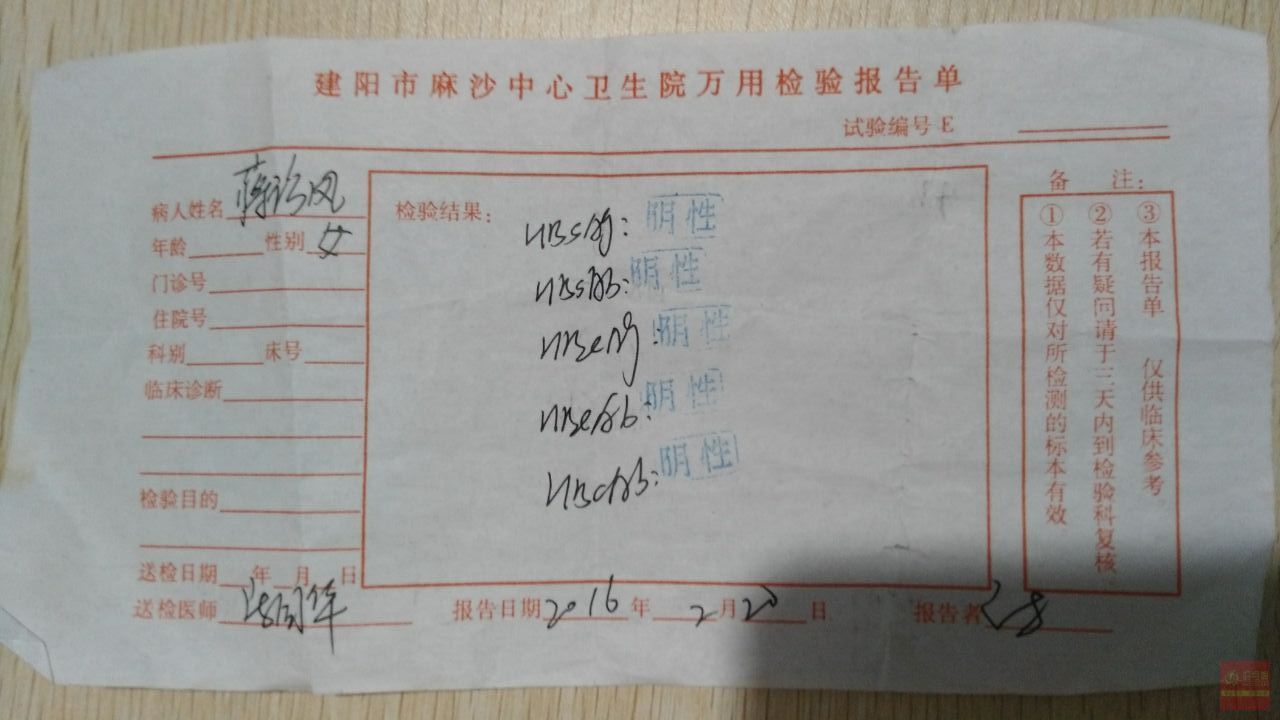 建阳市麻沙中心卫生院万用检验报告单
试验编号E
病人姓名
年龄 性别 女
门诊号
住院号
科别 床号
临床诊断
检验目的
送检日期 年 月 日
送检医师
检验结果：
HBsAg: 阴性
HBsAb: 阴性
HBeAg: 阴性
HBeAb: 阴性
HBcAb: 阴性
报告日期 2016 年 2 月 20 日
报告者
备 注：
①本数据仅对所检测的标本有效
②若有疑问请于三天内到检验科复核
③本报告单 仅供临床参考。